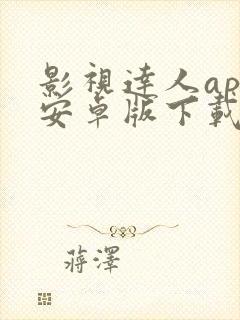 影視達人ap
安卓版下載
蔣澤